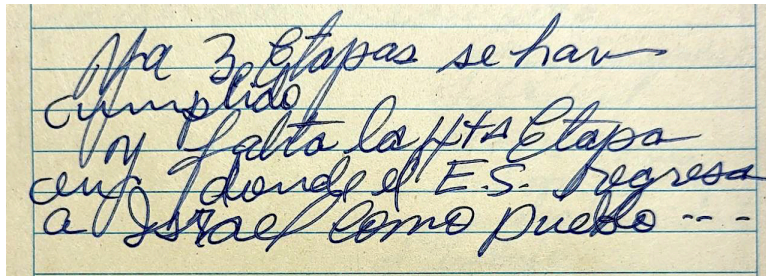 Ya 3 Etapas se han
cumplido
y falta la 4ta Etapa
en donde el E.S. regresa
a Israel como pueblo ---